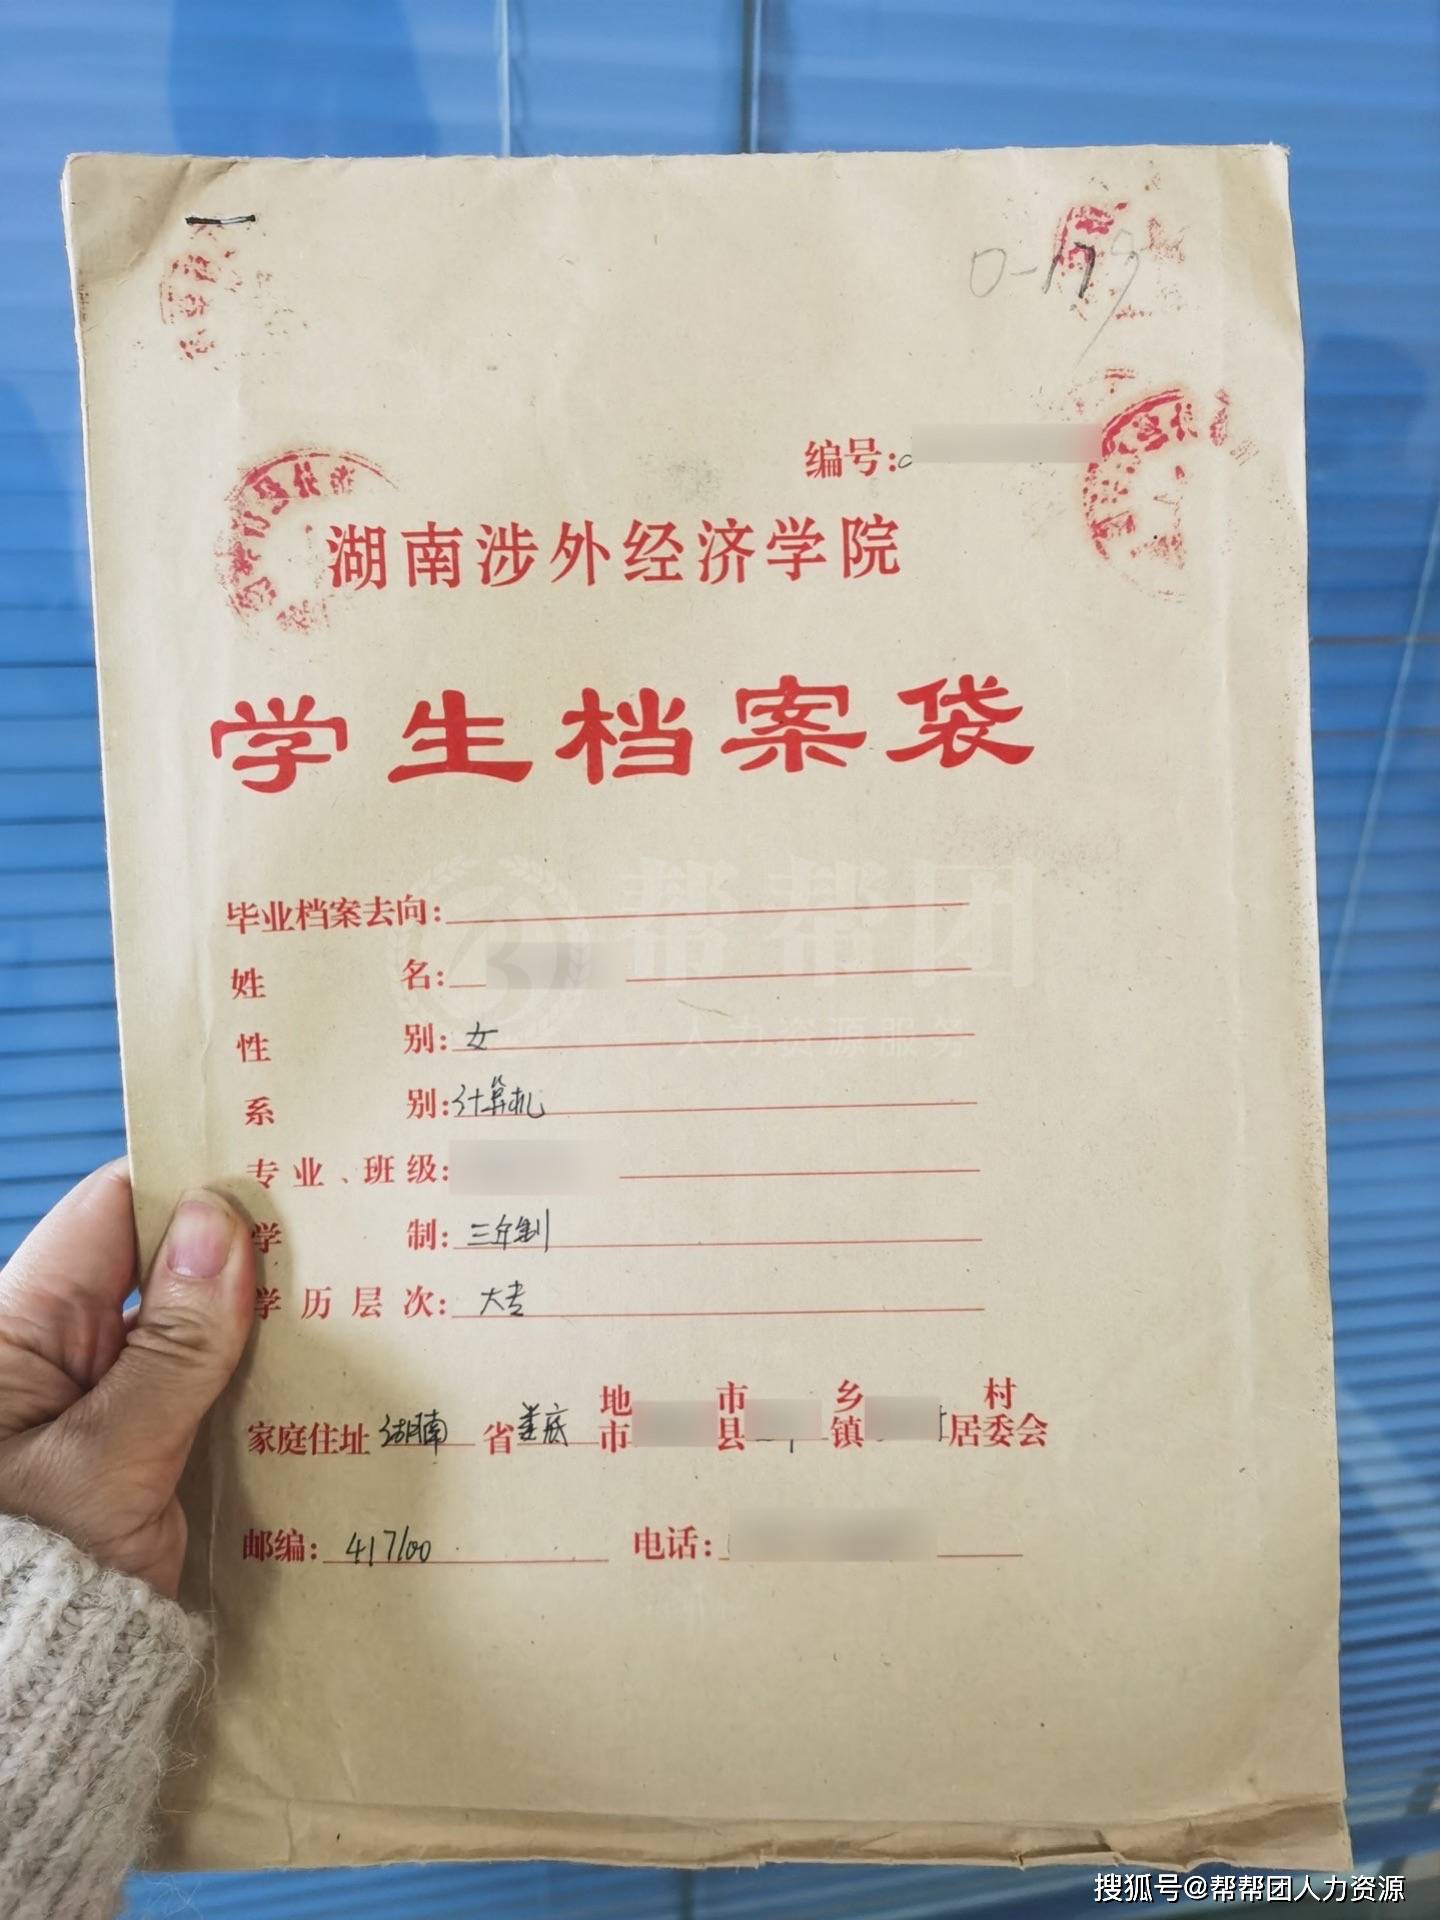 编号:
湖南涉外经济学院
学生档案袋
毕业档案去向:
姓名:
性别: 女
系别: 计算机
专业、班级:
学制: 三年制
学历层次: 大专
家庭住址 湖南 省 娄底 地市 市县 乡镇 村居委会
邮编: 417100 电话:
帮帮团
人力资源服务
搜狐号@帮帮团人力资源